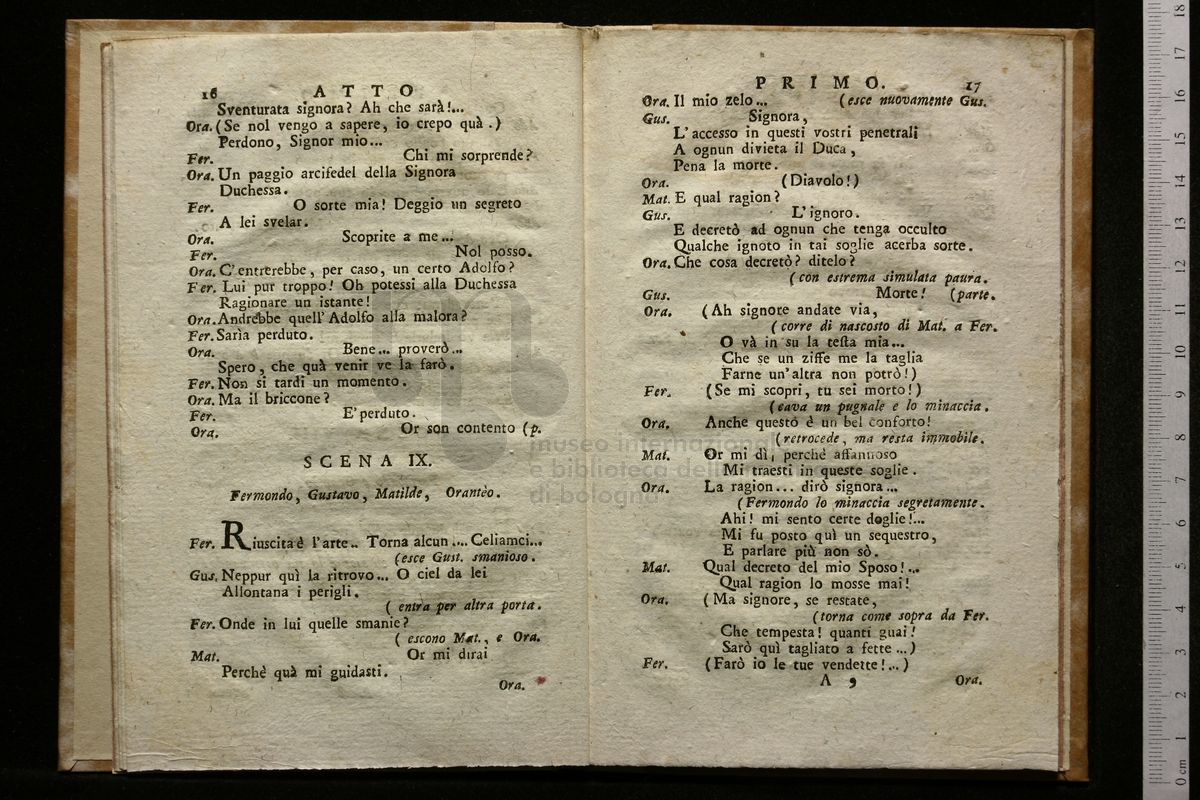 16 ATTO
Sventurata signora? Ah che sarà!...
Ora. (Se nol vengo a sapere, io crepo quà.)
Perdono, Signor mio...
Fer. Chi mi sorprende?
Ora. Un paggio arcifedel della Signora
Duchessa.
Fer. O sorte mia! Deggio un segreto
A lei svelar.
Ora. Scoprite a me...
Fer. Nol posso.
Ora. C'entrerebbe, per caso, un certo Adolfo?
Fer. Lui pur troppo! Oh potessi alla Duchessa
Ragionare un istante!
Ora. Andrebbe quell' Adolfo alla malora?
Fer. Sarìa perduto.
Ora. Bene... proverò...
Spero, che quà venir ve la farò.
Fer. Non si tardi un momento.
Ora. Ma il briccone?
Fer. E' perduto.
Ora. Or son contento (p.
SCENA IX.
Fermondo, Gustavo, Matilde, Orantèo.
Fer. Riuscita è l'arte.. Torna alcun.... Celiamci...
(esce Gust. smanioso.
Gus. Neppur quì la ritrovo... O ciel da lei
Allontana i perigli.
(entra per altra porta.
Fer. Onde in lui quelle smanie?
(escono Mat., e Ora.
Mat. Or mi dirai
Perchè quà mi guidasti.
Ora.
PRIMO. 17
Ora. Il mio zelo... (esce nuovamente Gus.
Gus. Signora,
L'accesso in questi vostri penetrali
A ognun divieta il Duca,
Pena la morte.
Ora. (Diavolo!)
Mat. E qual ragion?
Gus. L'ignoro.
E decretò ad ognun che tenga occulto
Qualche ignoto in tai soglie acerba sorte.
Ora. Che cosa decretò? ditelo?
(con estrema simulata paura.
Gus. Morte! (parte.
Ora. (Ah signore andate via,
(corre di nascosto di Mat. a Fer.
O và in su la testa mia...
Che se un ziffe me la taglia
Farne un'altra non potrò!)
Fer. (Se mi scopri, tu sei morto!)
(cava un pugnale e lo minaccia.
Ora. Anche questo è un bel conforto!
(retrocede, ma resta immobile.
Mat. Or mi dì, perchè affannoso
Mi traesti in queste soglie.
Ora. La ragion... dirò signora...
(Fermondo lo minaccia segretamente.
Ahi! mi sento certe doglie!...
Mi fu posto quì un sequestro,
E parlare più non sò.
Mat. Qual decreto del mio Sposo!...
Qual ragion lo mosse mai!
Ora. (Ma signore, se restate,
(torna come sopra da Fer.
Che tempesta! quanti guai!
Sarò quì tagliato a fette...)
Fer. (Farò io le tue vendette!...)
A 9 Ora.
museo internazional
e biblioteca dell
di bologna
0 cm 1 2 3 4 5 6 7 8 9 10 11 12 13 14 15 16 17 18